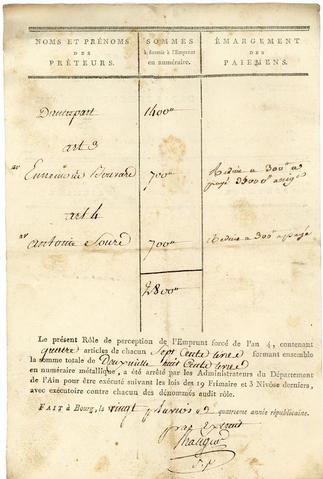 NOMS ET PRÉNOMS
DES
PRÊTEURS.
SOMMES
à fournir à l'Emprunt
en numéraire.
ÉMARGEMENT
DES
PAIEMENS.
D'autrepart 1400
art 3
Bouvard 700 Reduit a 300
art 4
antoine 700 Reduit a 300
2800
Le présent Rôle de perception de l'Emprunt forcé de l'an 4, contenant
quatre articles de chacun Sept Cents livres formant ensemble
la somme totale de Deux mille huit Cents livres
en numéraire métallique, a été arrêté par les Administrateurs du Département
de l'Ain pour être exécuté suivant les lois des 19 Frimaire et 3 Nivôse derniers,
avec exécutoire contre chacun des dénommés audit rôle.
FAIT à Bourg, le vingt quatrieme année républicaine.